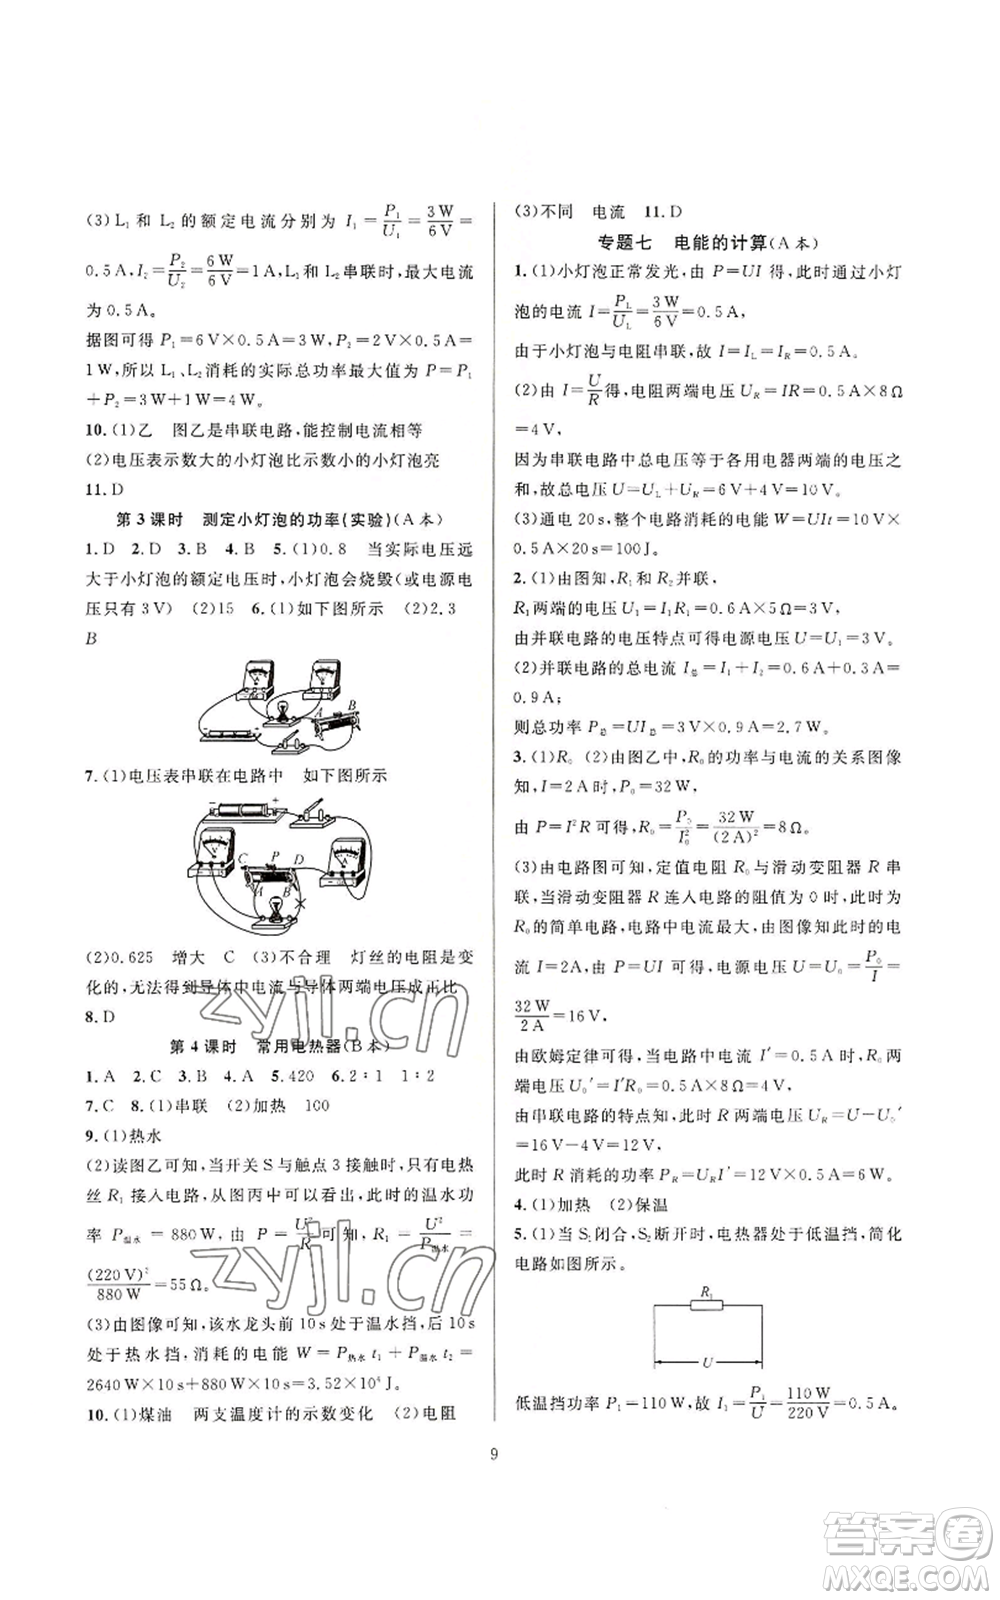 (3)L₁ 和 L₂ 的额定电流分别为 I₁ = P₁/U₁ = 3 W/6 V =
0.5 A, I₂ = P₂/U₂ = 6 W/6 V = 1 A, L₁ 和 L₂ 串联时,最大电流
为 0.5 A。
据图可得 P₁ = 6 V×0.5 A = 3 W, P₂ = 2 V×0.5 A =
1 W,所以 L₁、L₂ 消耗的实际总功率最大值为 P = P₁
+P₂ = 3 W+1 W = 4 W。
10.(1)乙 图乙是串联电路,能控制电流相等
(2)电压表示数大的小灯泡比示数小的小灯泡亮
11.D
第 3 课时 测定小灯泡的功率(实验)(A 本)
1.D 2.D 3.B 4.B 5.(1)0.8 当实际电压远
大于小灯泡的额定电压时,小灯泡会烧毁(或电源电
压只有 3 V) (2)15 6.(1)如下图所示 (2)2.3
B
A B
7.(1)电压表串联在电路中 如下图所示
− +
A V
C P D
A B
(2)0.625 增大 C (3)不合理 灯丝的电阻是变
化的,无法得到导体中电流与导体两端电压成正比
8.D
第 4 课时 常用电热器(B 本)
1.A 2.C 3.B 4.A 5.420 6.2∶1 1∶2
7.C 8.(1)串联 (2)加热 100
9.(1)热水
(2)读图乙可知,当开关 S 与触点 3 接触时,只有电热
丝 R₁ 接入电路,从图丙中可以看出,此时的温水功
率 P温水 = 880 W,由 P = U²/R 可知,R₁ = U²/P温水 =
(220 V)²/880 W = 55 Ω。
(3)由图像可知,该水龙头前 10 s 处于温水挡,后 10 s
处于热水挡,消耗的电能 W = P热水 t₁ + P温水 t₂ =
2640 W×10 s+880 W×10 s = 3.52×10⁴ J。
10.(1)煤油 两支温度计的示数变化 (2)电阻
(3)不同 电流 11.D
专题七 电能的计算(A 本)
1.(1)小灯泡正常发光,由 P=UI 得,此时通过小灯
泡的电流 I = P_L/U_L = 3 W/6 V = 0.5 A,
由于小灯泡与电阻串联,故 I = I_L = I_R = 0.5 A。
(2)由 I = U/R 得,电阻两端电压 U_R = IR = 0.5 A×8 Ω
= 4 V,
因为串联电路中总电压等于各用电器两端的电压之
和,故总电压 U = U_L+U_R = 6 V+4 V = 10 V。
(3)通电 20 s,整个电路消耗的电能 W = UIt = 10 V×
0.5 A×20 s = 100 J。
2.(1)由图知,R₁ 和 R₂ 并联,
R₁ 两端的电压 U₁ = I₁R₁ = 0.6 A×5 Ω = 3 V,
由并联电路的电压特点可得电源电压 U = U₁ = 3 V。
(2)并联电路的总电流 I总 = I₁ + I₂ = 0.6 A+0.3 A =
0.9 A;
则总功率 P总 = UI总 = 3 V×0.9 A = 2.7 W。
3.(1)R₀ (2)由图乙中,R₀ 的功率与电流的关系图像
知,I = 2 A 时,P₀ = 32 W,
由 P = I²R 可得,R₀ = P₀/I₀² = 32 W/(2 A)² = 8 Ω。
(3)由电路图可知,定值电阻 R₀ 与滑动变阻器 R 串
联,当滑动变阻器 R 连入电路的阻值为 0 时,此时为
R₀ 的简单电路,电路中电流最大,由图像知此时的电
流 I = 2A,由 P = UI 可得,电源电压 U = U₀ = P₀/I =
32 W/2 A = 16 V,
由欧姆定律可得,当电路中电流 I′ = 0.5 A 时,R₀ 两
端电压 U₀′ = I′R₀ = 0.5 A×8 Ω = 4 V,
由串联电路的特点知,此时 R 两端电压 U_R = U−U₀′
= 16 V−4 V = 12 V,
此时 R 消耗的功率 P_R = U_R I′ = 12 V×0.5 A = 6 W。
4.(1)加热 (2)保温
5.(1)当 S₁ 闭合,S₂ 断开时,电热器处于低温挡,简化
电路如图所示。
R₁
U
低温挡功率 P₁ = 110 W,故 I = P₁/U = 110 W/220 V = 0.5 A。
9
zyjl.cn
zyjl.cn
答案圈
MXQE.COM